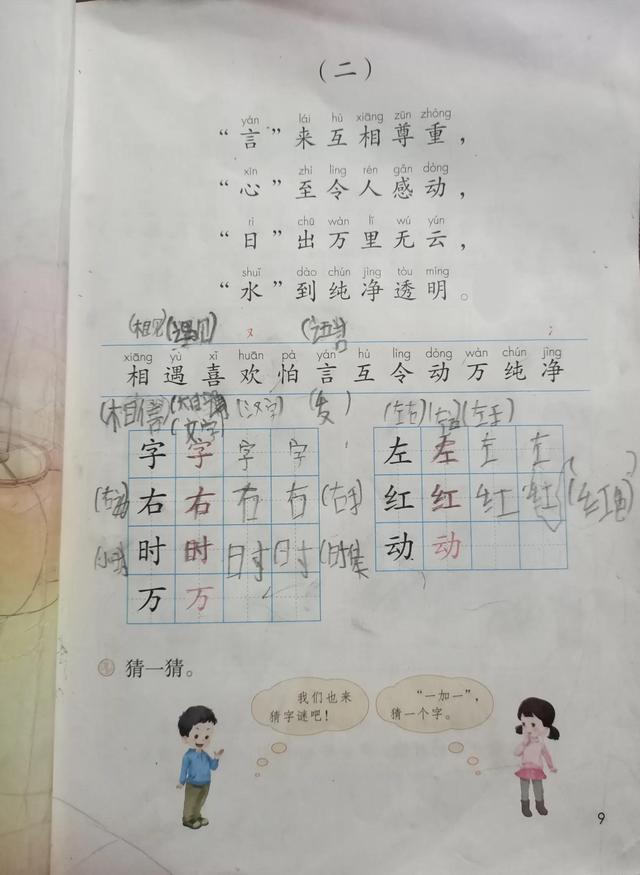 （二）
yán lái hù xiāng zūn zhòng
“言”来互相尊重，
xīn zhì lìng rén gǎn dòng
“心”至令人感动，
rì chū wàn lǐ wú yún
“日”出万里无云，
shuǐ dào chún jìng tòu míng
“水”到纯净透明。
(相见)
xiāng yù xǐ huān pà yán hù lìng dòng wàn chún jìng
相遇喜欢怕言互令动万纯净
(相信) (文字) (汉字) (左右) (左手)
字 字 字 字 左 左 左 左
右 右 右 右 (右手) 红 红 红 红 (红色)
时 时 时 时 动 动
万 万
猜一猜。
我们也来
猜字谜吧！
“一加一”，
猜一个字。
9